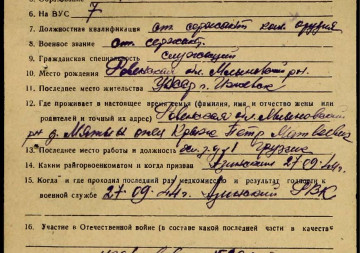 6. На ВУС 7
7. Должностная квалификация ст. сержант ком. орудия
8. Военное звание ст. сержант
9. Гражданская специальность служащий
10. Место рождения Ровенская обл. Млыновский рн.
11. Последнее место жительства УАССР г. Ижевск
12. Где проживает в настоящее время семья (фамилия, имя и отчество жены или
родителей и точный их адрес) Ровенская обл. Млыновский
рн д. отец Петр Матвеевич
13. Последнее место работы и должность
14. Каким райгорвоенкоматом и когда призван 27-09-44г.
15. Когда и где проходил последний раз медкомиссию и результат годности к
военной службе 27-09-44г. РВК
16. Участие в Отечественной войне (в составе какой последней части в качестве